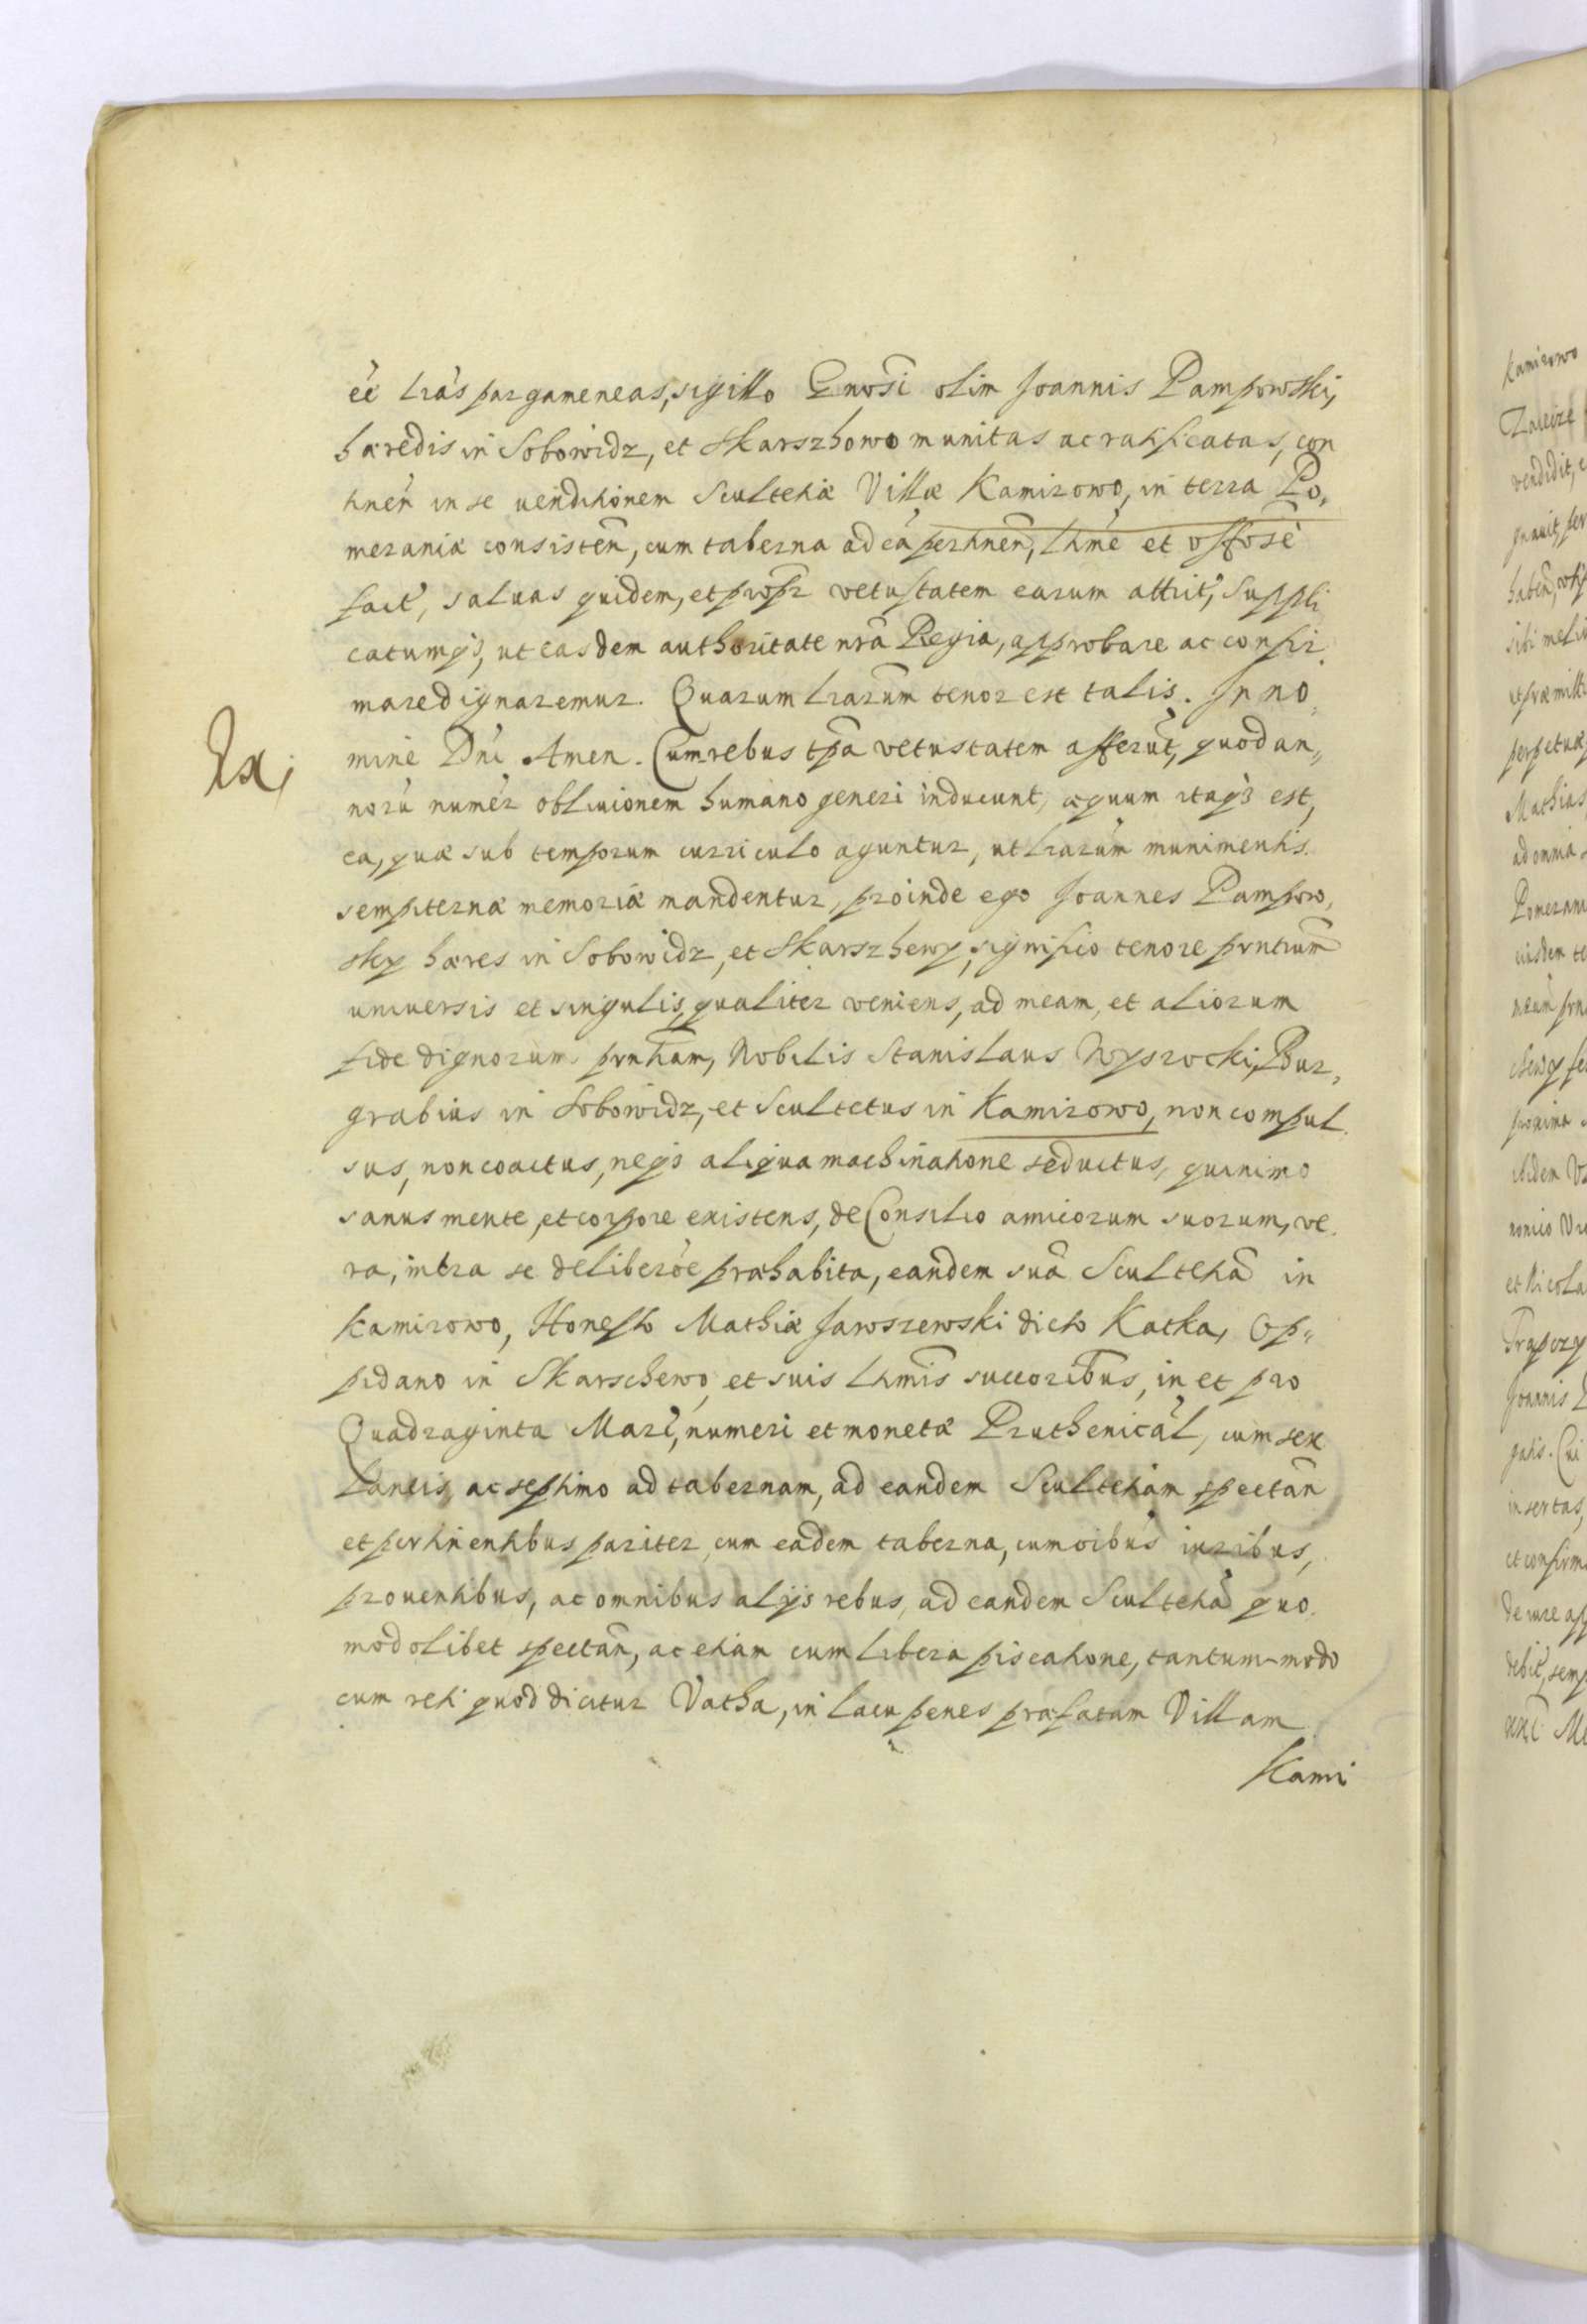 éé lrãs pargameneas, sigillo Gnosi olim Joannis Pampowski,
hæredis in Sobowidz, et Skarszhowo munitas ac ratificatas, con
tinen̄ in se uenditionem Scultetiæ Villæ Kamizowo, in terra Po,
meraniæ consisten̄, cum taberna ad eã pertinen̄, ltmé et
fact̃, saluas quidem, et propr̃ vetustatem earum attrit̃, Suppli
catumq3, ut easdem authoritate nrã Regia, approbare ac confir
mare dignaremur. Quarum lrarum tenor est talis. In no,
mine Dñi Amen. Cum rebus tp̃a vetustatem afferũt, quod an„
Ex;
norũ numer̃ obliuionem humano generi inducunt, æquum itaq3 est,
ea, quæ sub temporum curriculo aguntur, ut lrarum munimentis
sempiternæ memoriæ mandentur, proinde ego Joannes Pampow,
sky hæres in Sobowidz, et Skarszhewy, significo tenore pr̃ntium
uniuersis et singulis, qualiter veniens, ad meam, et aliorum
fide dignorum pr̃ntiam, Nobilis Stanislaus Wyszocki, Bur,
grabius in Sobowidz, et Scultetus in Kamizowo, non compul
sus, non coactus, neq3 aliqua machinatione seductus, quinimo
sanus mente, et corpore existens, de Consilio amicorum suorum, ve
ra, intra se deliberõe præhabita, eandem suã Scultetiã in
Kamizowo, Honesto Mathiæ Jawszewski dicto Katka, Op„
pidano in Skarschewo, et suis ltmis succoribus, in et pro
Quadraginta Marc̃, numeri et monetæ Pruthenical̃, cum sex
Laneis, ac septimo ad tabernam, ad eandem Scultetiam spectan̄
et pertinentibus pariter, cum eadem taberna, cum oibus iuribus,
prouentibus, ac omnibus alijs rebus, ad eandem Scultetiã quo
modolibet spectan̄, ac etiam cum libera piscatione, tantum-modo
cum reti quod dicitur Vatha, in lacu penes præfatam Villam
Kami